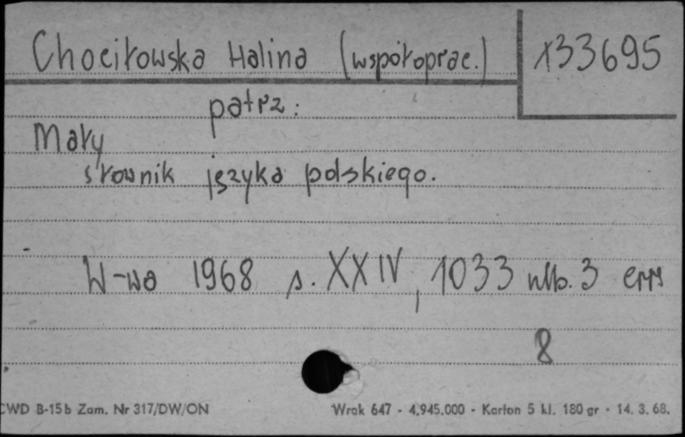 Chociłowska Halina (współoprac.) x33695
patrz:
Mały
słownik języka polskiego.
W-wa 1968 s. XXIV, 1033 nlb. 3 err
8
CWD B-15b Zam. Nr 317/DW/ON Wrak 647 - 4.945.000 - Karton 5 kl. 180 gr - 14. 3. 68.